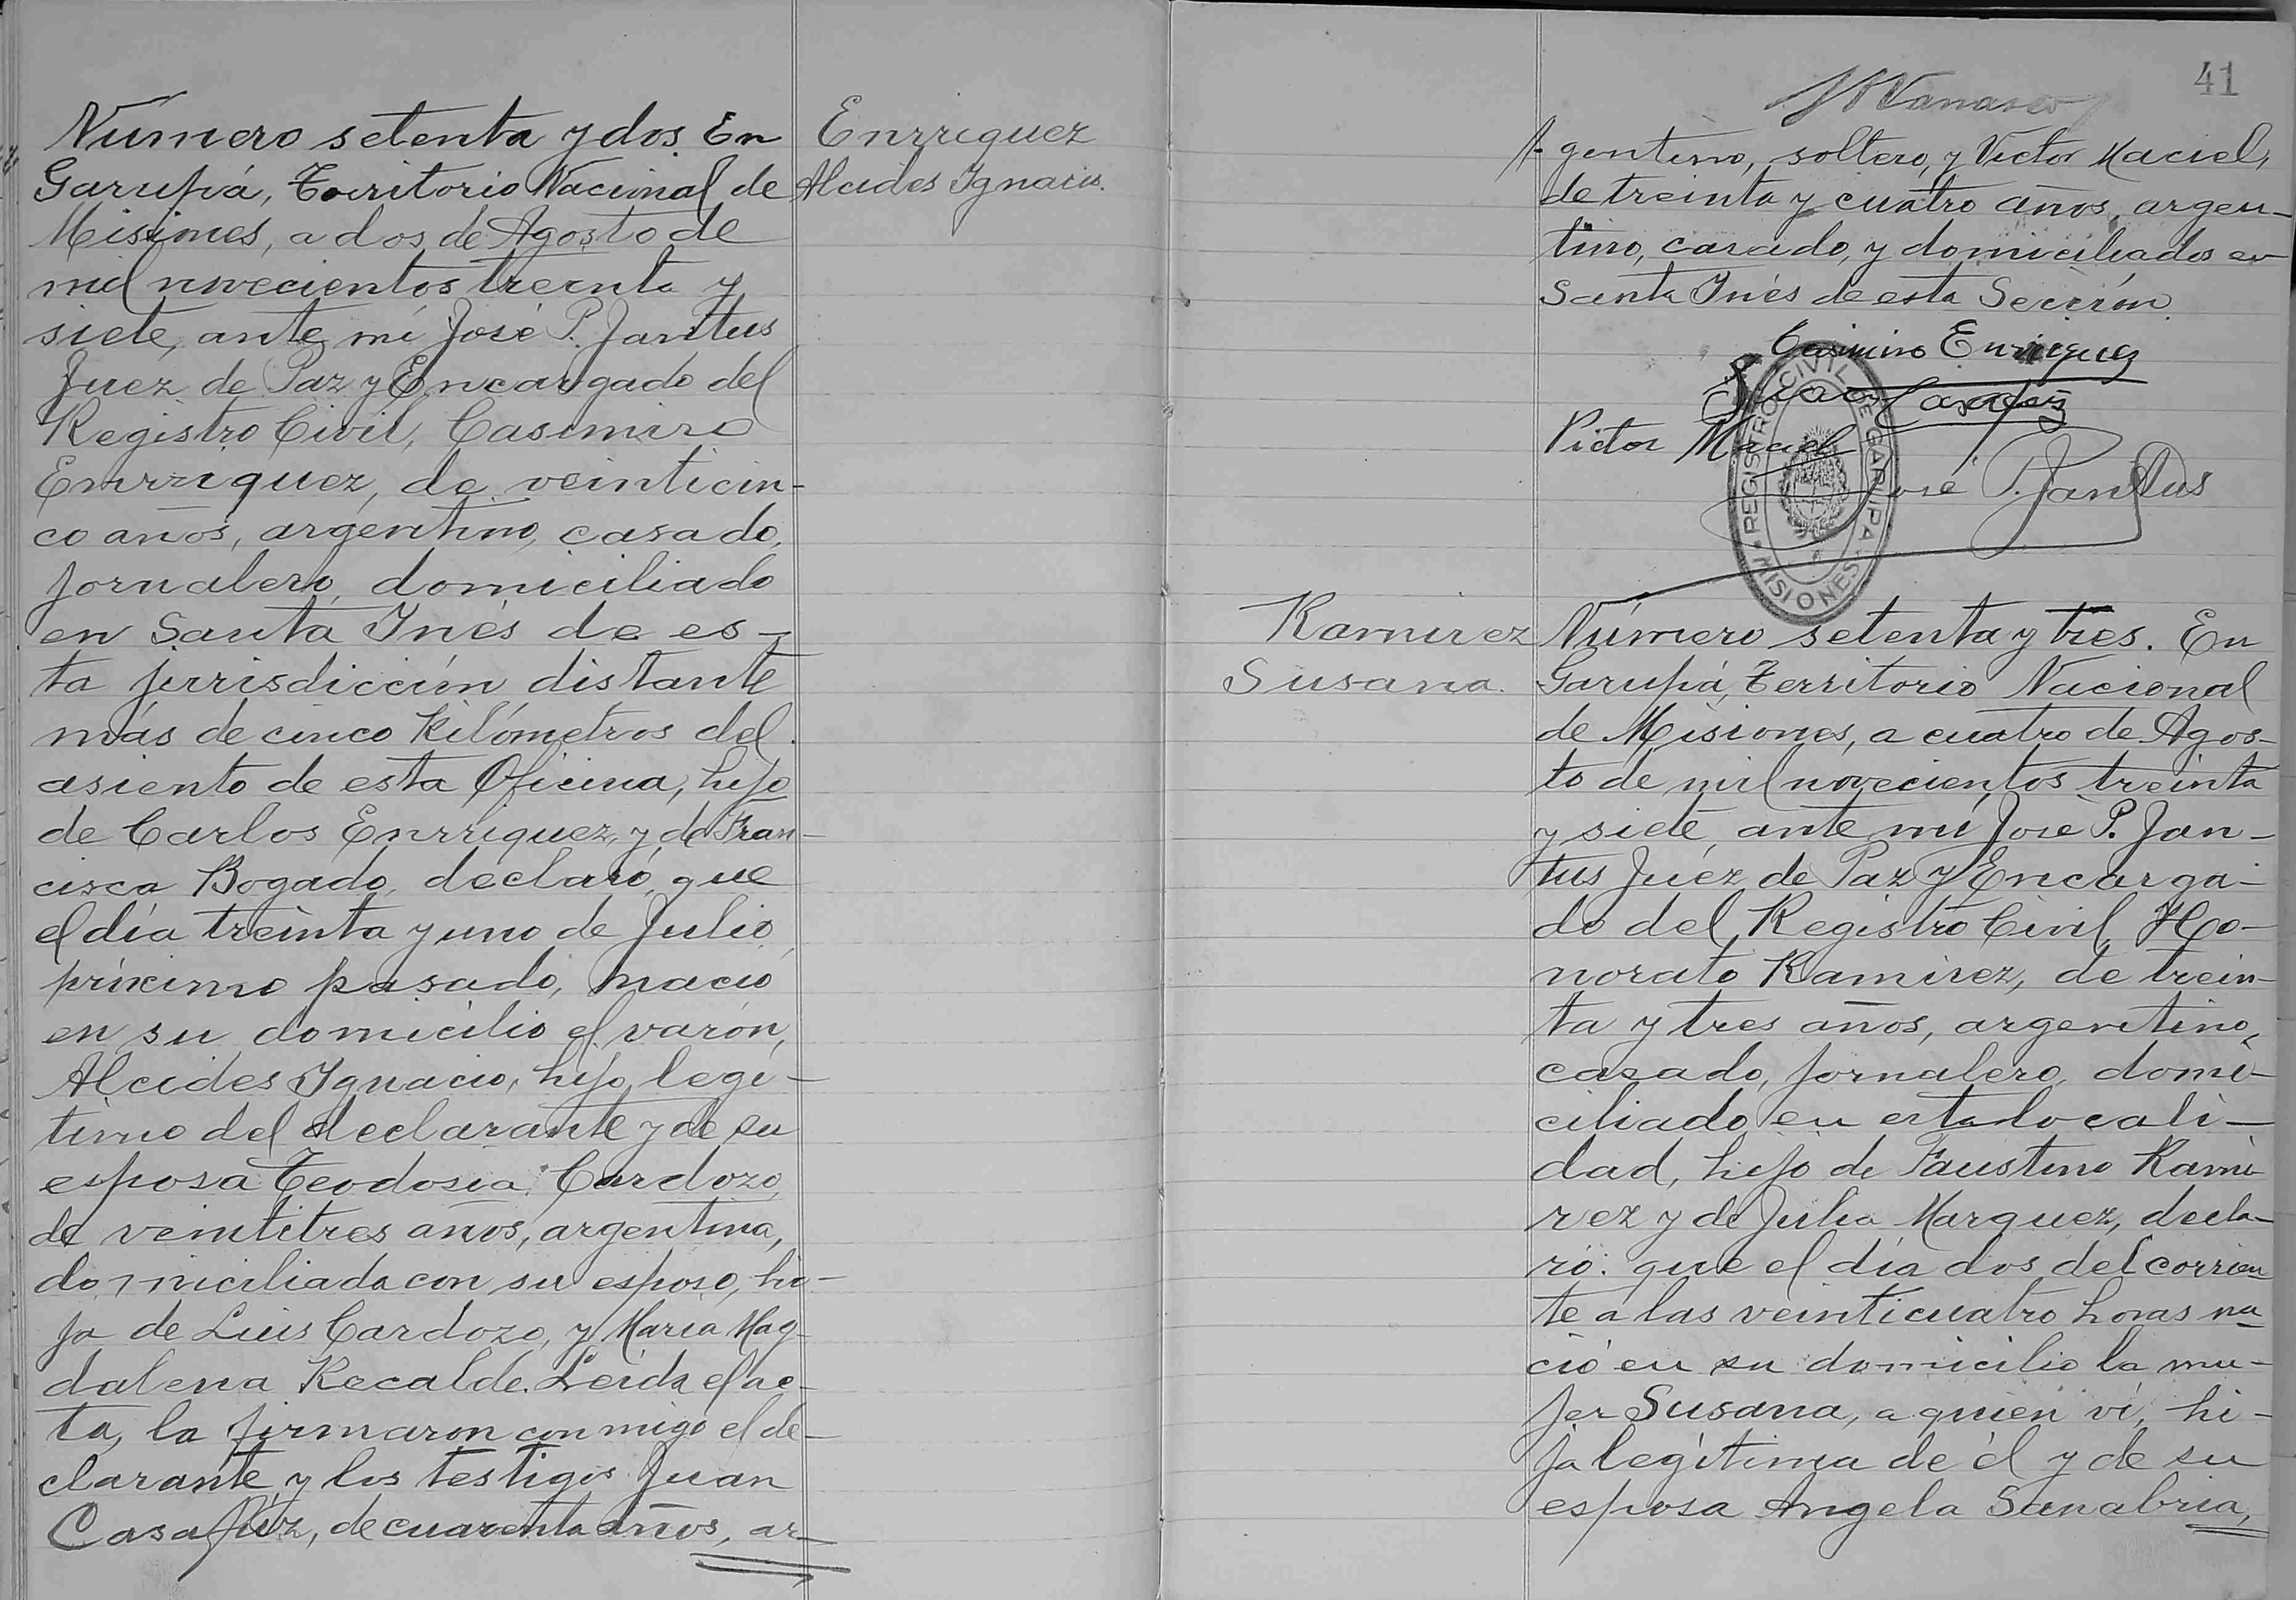 Número setenta y dos. En
Garupá, Territorio Nacional de
Misiones, a dos de Agosto de
mil novecientos treinta y
siete, ante mí José P. Jantus
Juez de Paz y Encargado del
Registro Civil, Casimiro
Enrriquez, de veinticin-
co años, argentino, casado,
jornalero, domiciliado
en Santa Inés de es-
ta jurisdicción distante
más de cinco kilómetros del
asiento de esta Oficina, hijo
de Carlos Enrriquez, y de Fran-
cisca Bogado, declaró, que
el día treinta y uno de Julio
próximo pasado, nació
en su domicilio el varón,
Alcides Ignacio, hijo legí-
timo del declarante y de su
esposa Teodosia Cardozo,
de veintitres años, argentina,
domiciliada con su esposo, hi-
ja de Luis Cardozo, y María Mag-
dalena Recalde. Leida el ac-
ta, la firmaron conmigo el de-
clarante y los testigos Juan
Casafúz, de cuarenta años, ar-
Enrriquez
Alcides Ignacio.
41
gentino, soltero, y Victor Maciel,
de treinta y cuatro años, argen-
tino, casado, y domiciliados en
Santa Inés de esta Sección.
Casimiro Enrriquez
Juan Casafúz
Victor Maciel
José P. Jantus
REGISTRO CIVIL DE GARUPA
MISIONES
Ramirez
Susana.
Número setenta y tres. En
Garupá, Territorio Nacional
de Misiones, a cuatro de Agos-
to de mil novecientos treinta
y siete, ante mí José P. Jan-
tus Juez de Paz y Encarga-
do del Registro Civil, Ho-
norato Ramirez, de trein-
ta y tres años, argentino,
casado, jornalero, domi-
ciliado en esta locali-
dad, hijo de Faustino Rami
rez y de Julia Marquez, decla-
ró: que el día dos del corrien
te a las veinticuatro horas na
ció en su domicilio la mu-
jer Susana, a quien ví, hi-
ja legítima de él y de su
esposa Angela Sanabria,